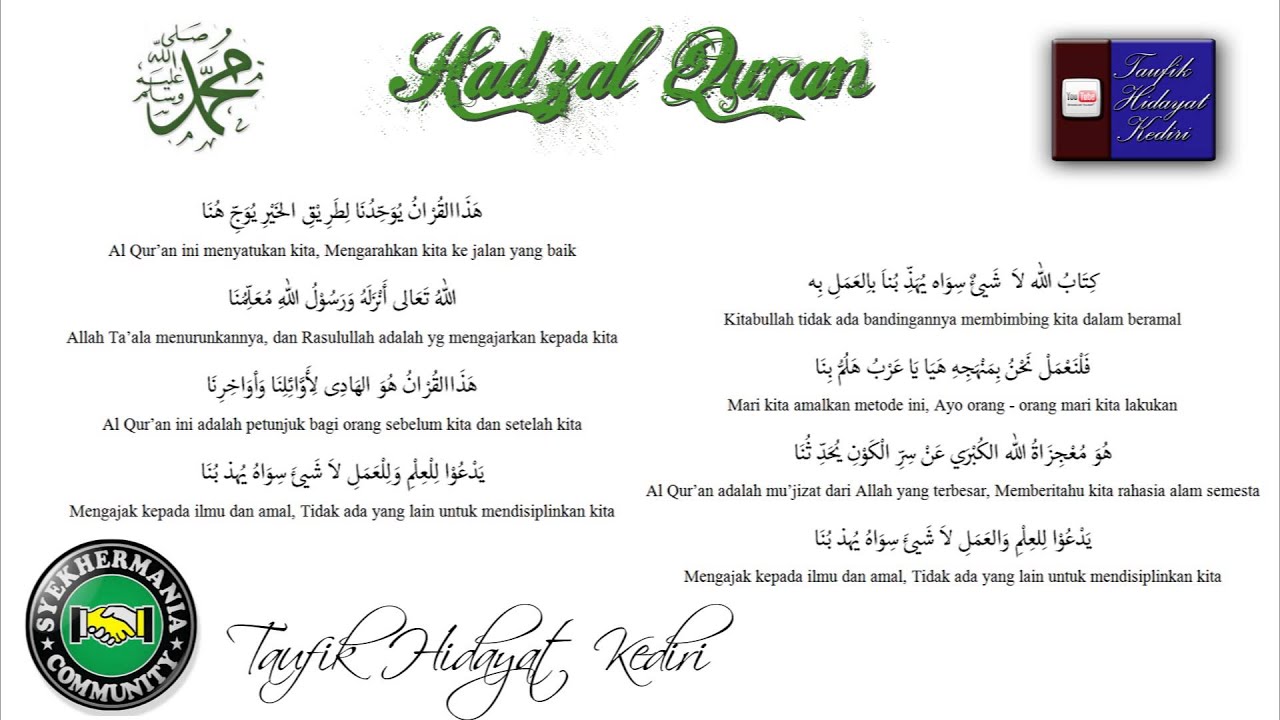 صلى الله عليه وسلم
محمد
Hadzal Quran
You Tube
Taufik
Hidayat
Kediri
هَذَاالقُرْانُ يُوَحِّدُنَا لِطَرِيْقِ الخَيْرِ يُوَجِّ هُنَا
Al Qur’an ini menyatukan kita, Mengarahkan kita ke jalan yang baik
اللهُ تَعَالى أَنْزَلَهُ وَرَسُوْلُ اللهِ مُعَلِّمُنَا
Allah Ta’ala menurunkannya, dan Rasulullah adalah yg mengajarkan kepada kita
هَذَاالقُرْانُ هُوَ الهَادِى لِأَوَّائِلِنَا وَأوَاخِرِنَا
Al Qur’an ini adalah petunjuk bagi orang sebelum kita dan setelah kita
يَدْعُوْا لِلْعِلْمِ وَلِلْعَمَلِ لاَ شَيئَ سِوَاهُ يُهذ بُنَا
Mengajak kepada ilmu dan amal, Tidak ada yang lain untuk mendisiplinkan kita
كِتَابُ الله لاَ شَيئٌ سِوَاه يُهَذِّ بُناَ بالِعَمَلِ بِه
Kitabullah tidak ada bandingannya membimbing kita dalam beramal
فَلْنَعْمَلْ نَحْنُ بِمَنْهَجِهِ هَيَا يَا عَرْبُ هَلُمُّ بِنَا
Mari kita amalkan metode ini, Ayo orang - orang mari kita lakukan
هُوَ مُعْجِزَاةُ الله الكُبْرَي عَنْ سِرِّ الْكَوْنِ يُحَدِّ ثُنَا
Al Qur’an adalah mu’jizat dari Allah yang terbesar, Memberitahu kita rahasia alam semesta
يَدْعُوْا لِلعِلْمِ وَالعَمَلِ لاَ شَيئَ سِوَاهُ يُهذ بُنَا
Mengajak kepada ilmu dan amal, Tidak ada yang lain untuk mendisiplinkan kita
SYEKHERMANIA
COMMUNITY
Taufik Hidayat Kediri